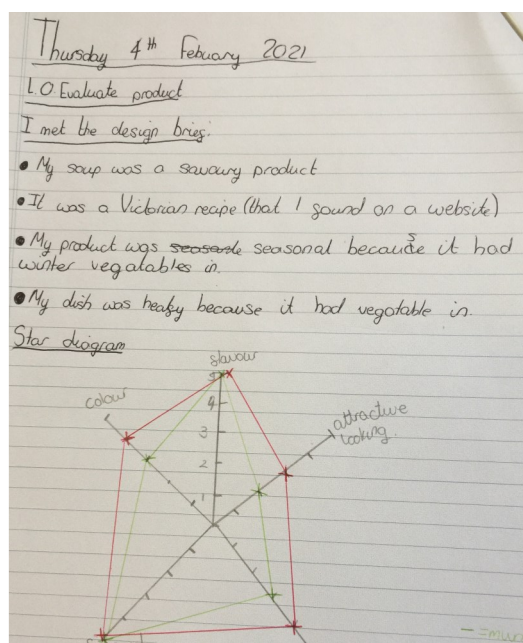 Thursday 4th Febuary 2021
L.O. Evaluate product
I met the design brief.
• My soup was a savoury product
• It was a Victorian recipe (that I found on a website)
• My product was seasonal because it had
winter vegatables in.
• My dish was healfy because it had vegatable in.
Star diagram
flavour
colour
attractive
looking.
5
4
3
2
1
- = mum